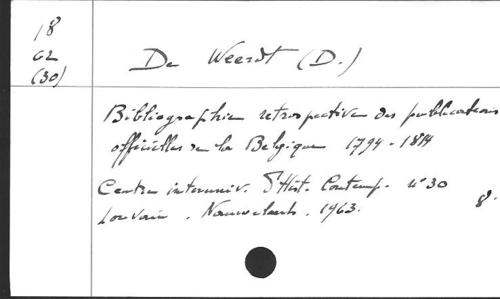 18
G2
(30)
De Weerdt (D.)
Bibliographie retrospective des publications
officielles de la Belgique 1794-1814
Centre interuniv. d'Hist. Contemp. n° 30
Louvain. Nauwelaerts. 1963. 8°